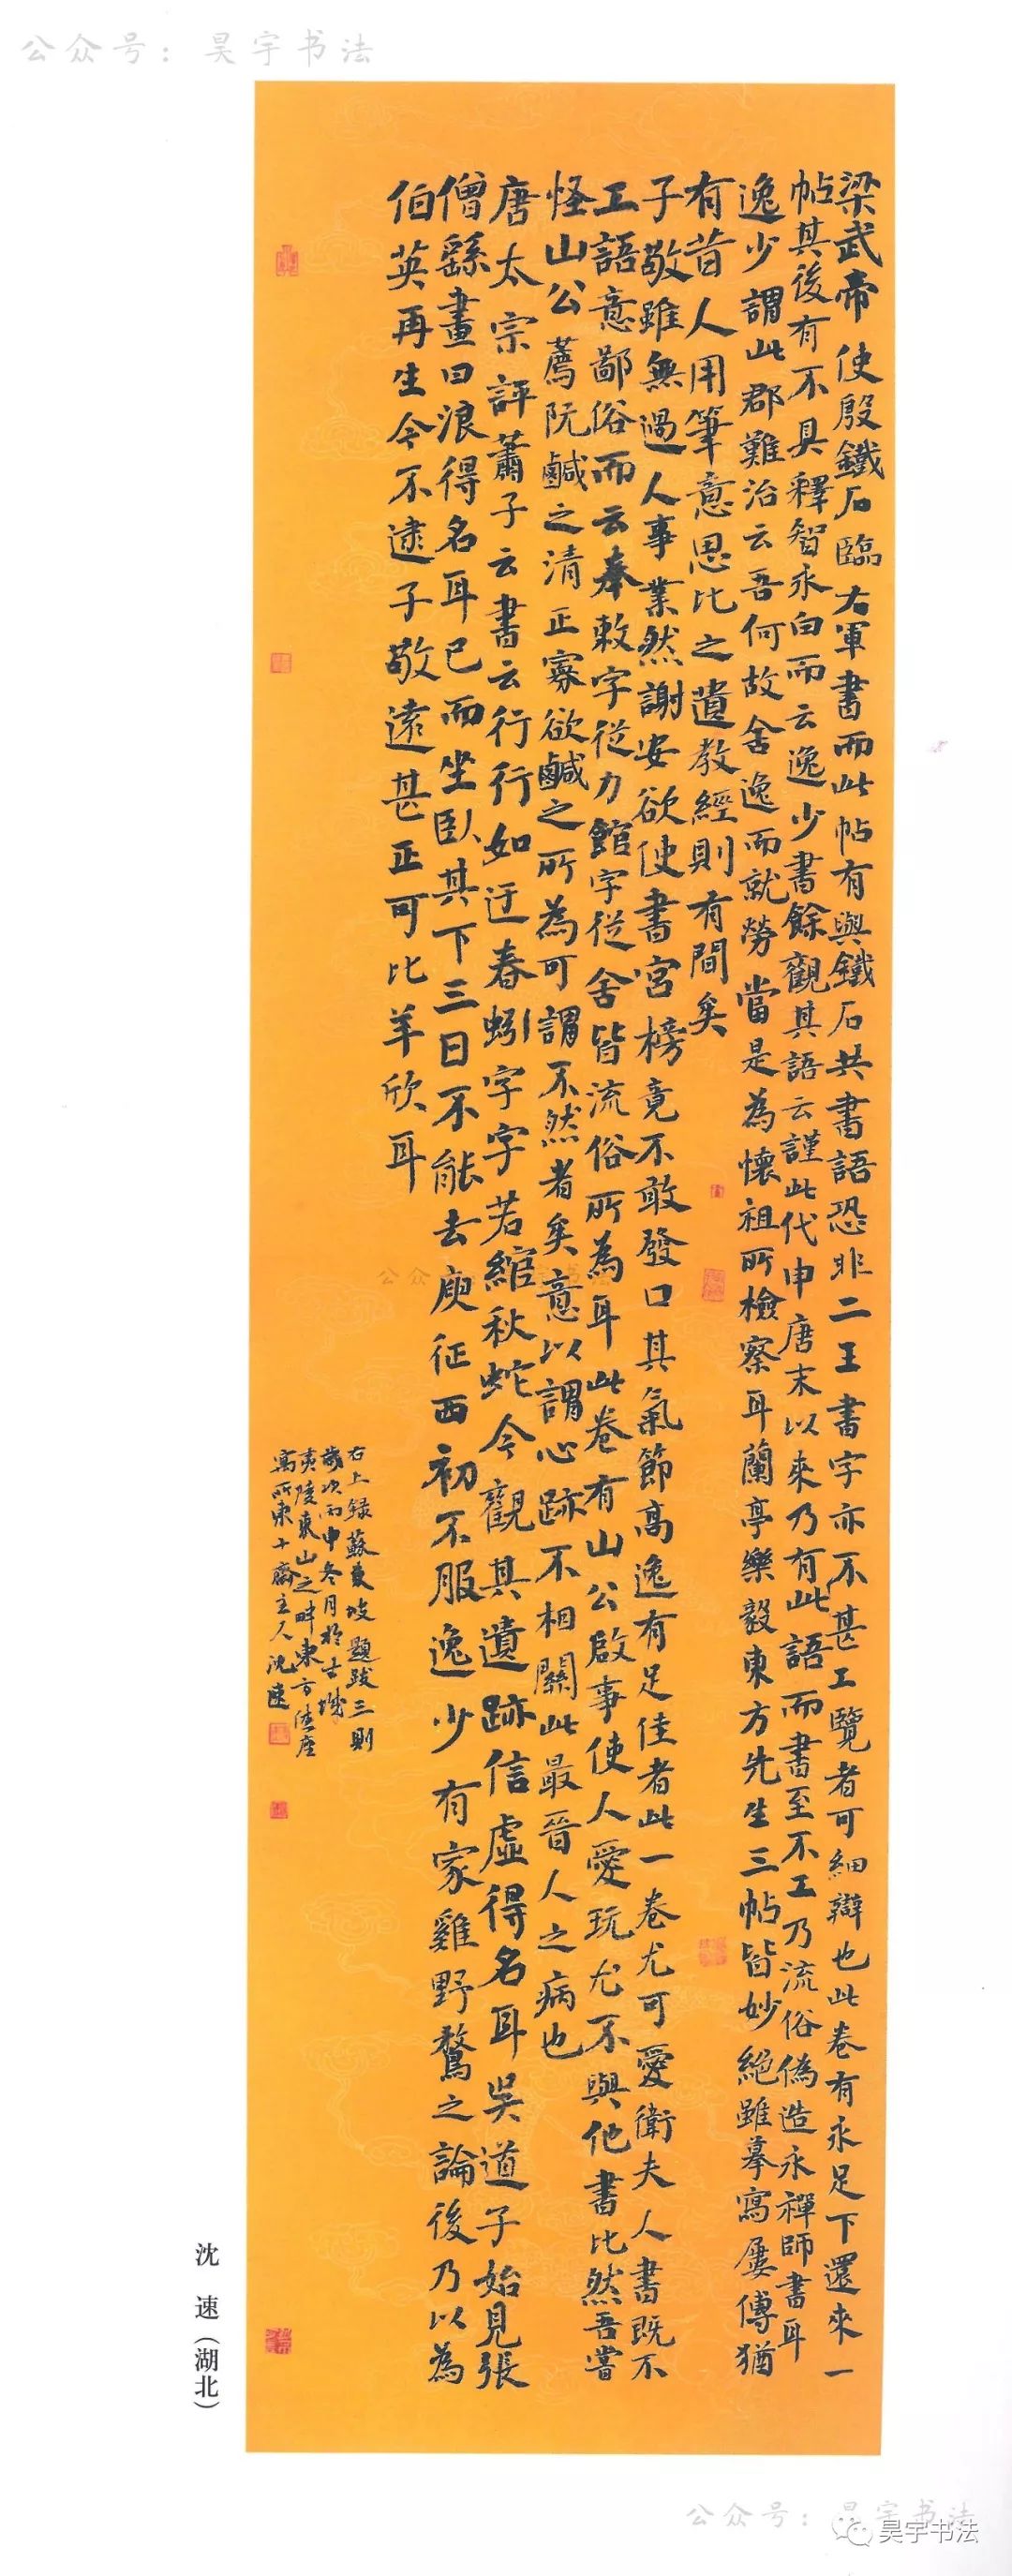 公众号：昊宇书法
梁武帝使殷鐵石臨右軍書而此帖有與鐵石共書語恐非二王書字亦不甚工覽者可細辯也此卷有永足下還來一
帖其後有不具釋智永白而云逸少書餘觀其語云謹此代申唐末以來乃有此語而書至不工乃流俗偽造永禪師書耳
逸少謂此郡難治云吾何故舍逸而就勞當是為懷祖所檢察耳蘭亭樂毅東方先生三帖皆妙絕雖摹寫屢傳猶
有昔人用筆意思比之遺教經則有間矣
子敬雖無過人事業然謝安欲使書宮榜竟不敢發口其氣節高逸有足佳者此一卷尤可愛衛夫人書既不
工語意鄙俗而云奉敕字從力館字從舍皆流俗所為耳此卷有山公啟事使人愛玩尤不與他書比然吾嘗
怪山公薦阮鹹之清正寡欲鹹之所為可謂不然者矣意以謂心跡不相關此最晉人之病也
唐太宗評蕭子云書云行行如迂春蚓字字若綰秋蛇今觀其遺跡信虛得名耳吳道子始見張
僧繇畫曰浪得名耳已而坐臥其下三日不能去庾征西初不服逸少有家雞野鶩之論後乃以為
伯英再生今不逮子敬遠甚正可比羊欣耳
右上録蘇東坡題跋三則
歲次丙申冬月於古城
夷陵東山之畔東方佳座
寓所東十齋主人沈速
公众号：昊宇书法
沈速（湖北）
公众号：昊宇书法
昊宇书法